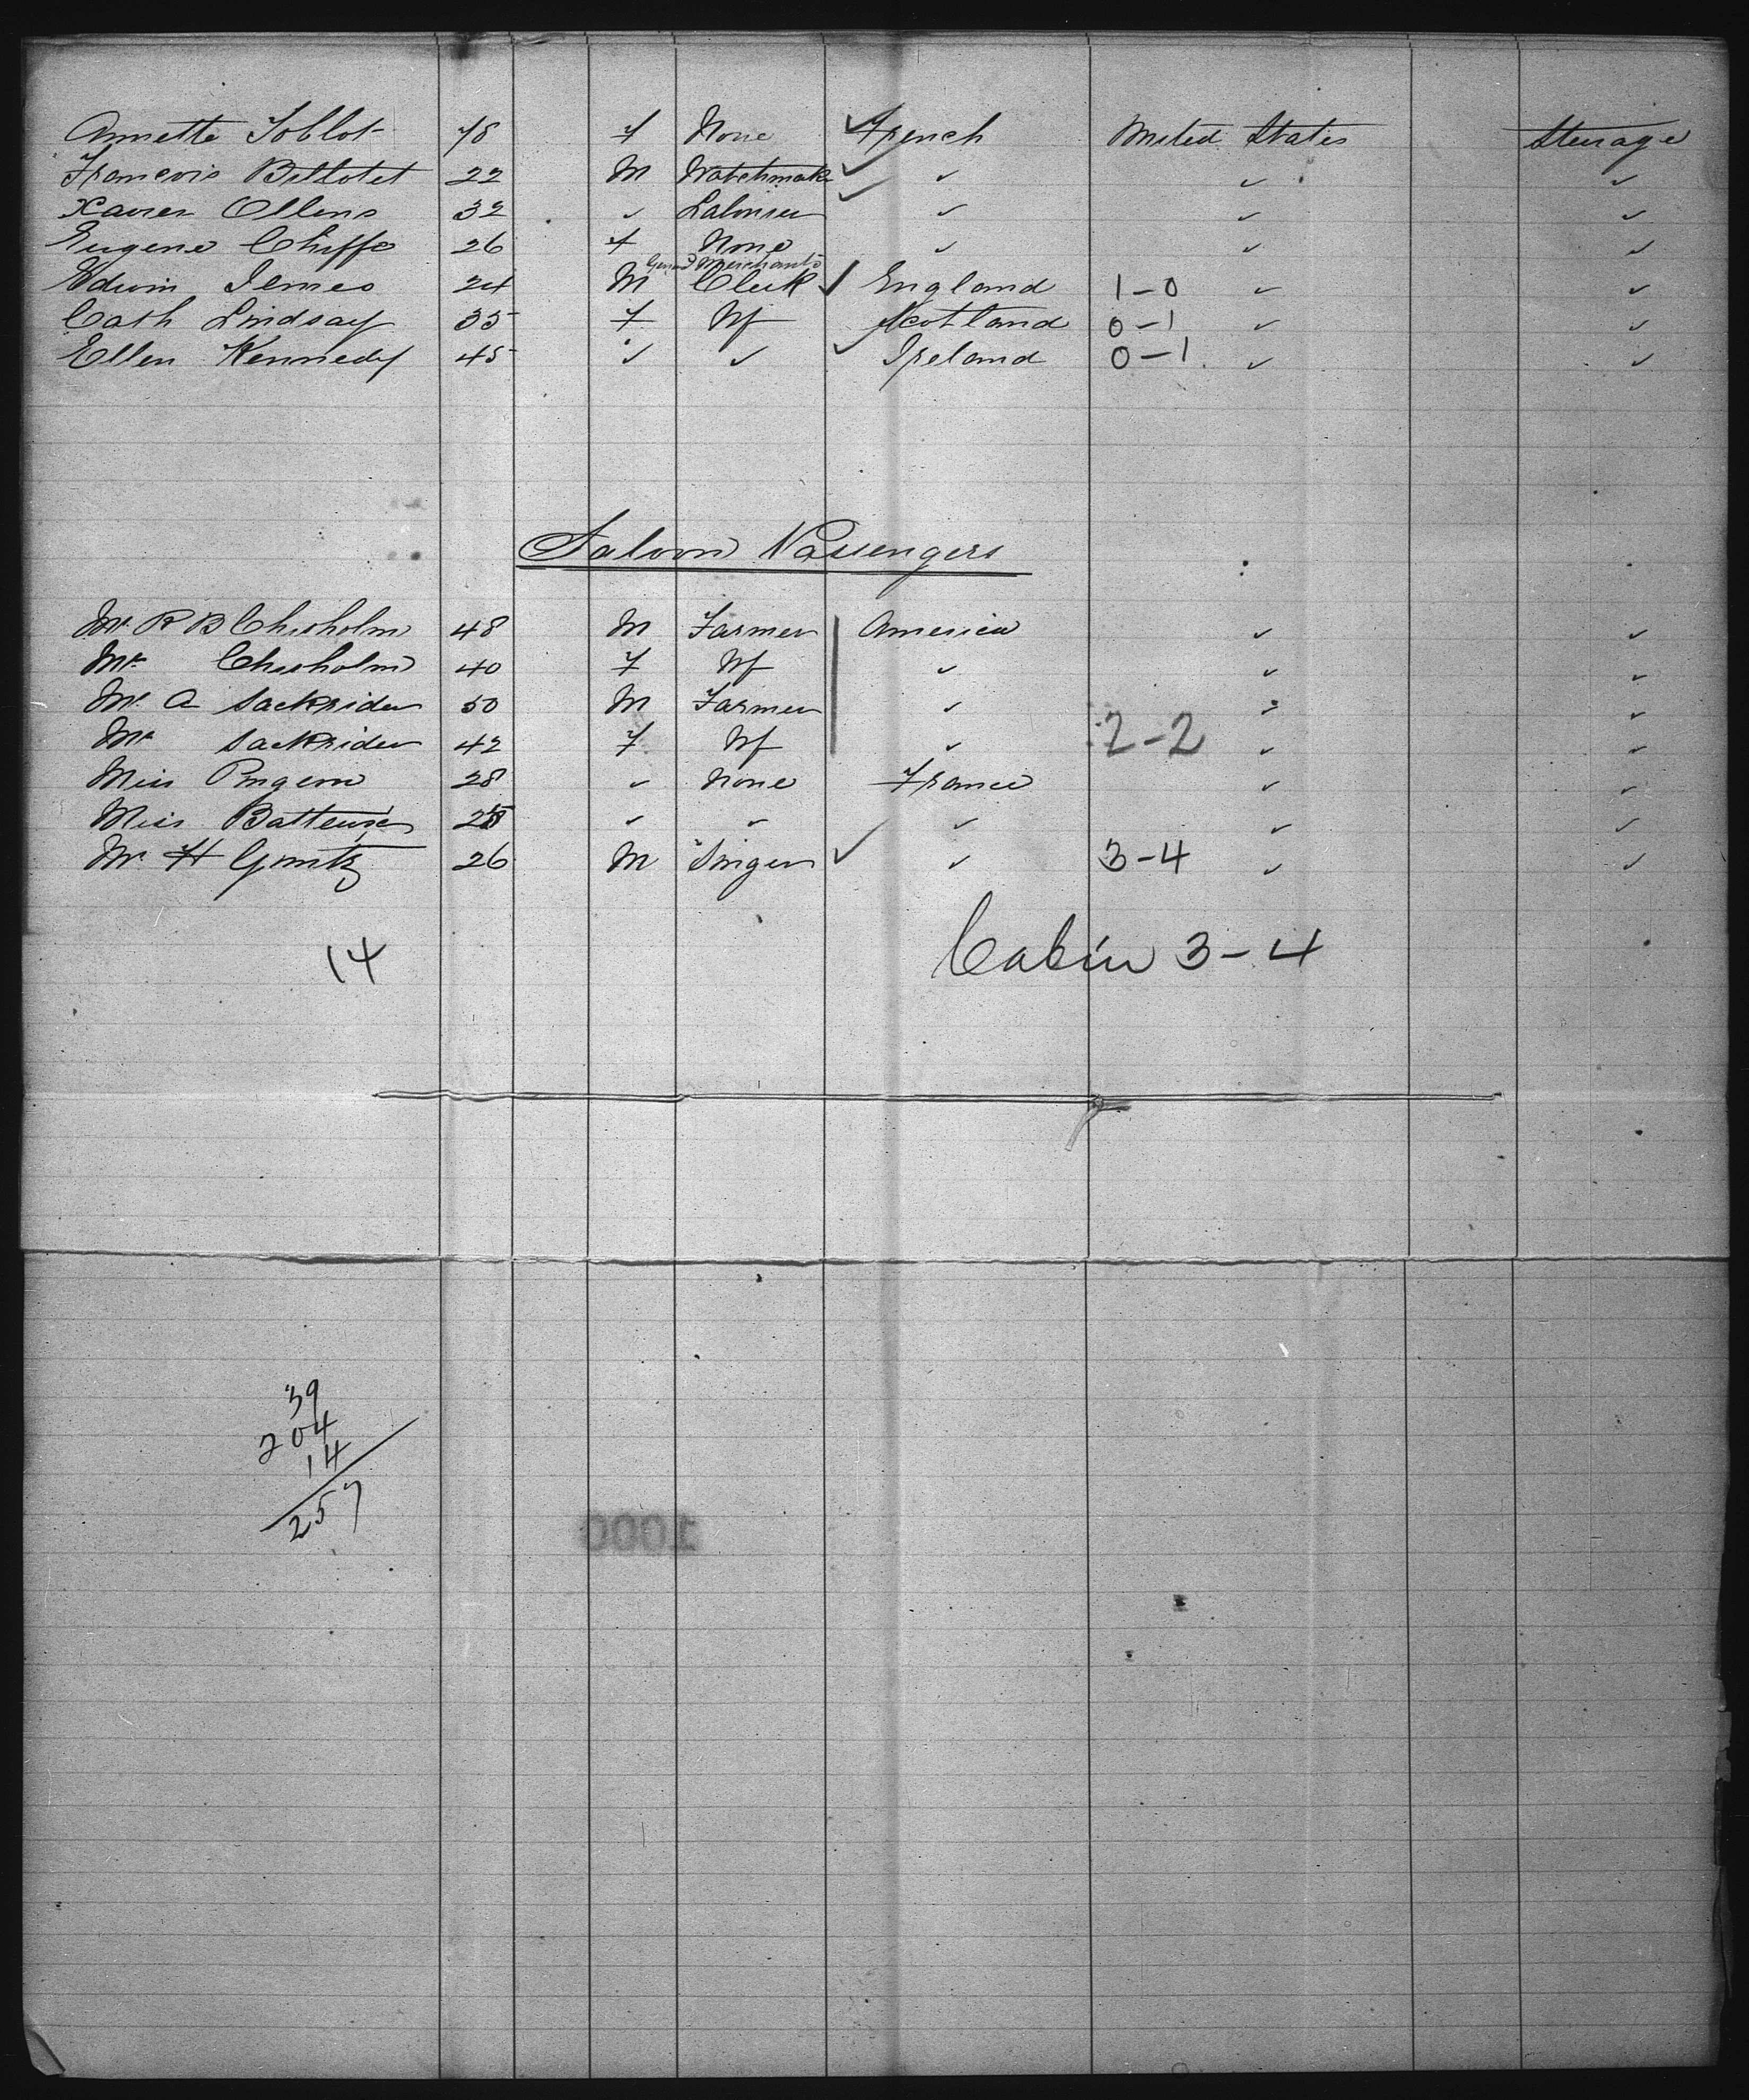 Annette Joblot 78 F None ✓ French United States Steerage
Francois Billotet 22 M Watchmak ✓ ✓ ✓ ✓
Xavier Ollens 32 ✓ Labourer ✓ ✓ ✓ ✓
Eugene Chiffe 26 F None ✓ ✓ ✓
General Merchants
Edwin Jemes 24 M Clerk ✓ England 1-0 ✓ ✓
Cath Lindsay 35 F Wf Scotland 0-1 ✓ ✓
Ellen Kennedy 45 ✓ ✓ ✓ Ireland 0-1 ✓ ✓
Saloon Passengers
Mr. R B Chisholm 48 M Farmer America ✓ ✓
Mrs Chisholm 40 F Wf ✓ ✓ ✓
Mr. A Sackrider 50 M Farmer ✓ ✓ ✓
Mrs Sackrider 42 F Wf ✓ 2-2 ✓ ✓
Miss 28 ✓ None France ✓ ✓
Miss ✓ ✓ ✓ ✓ ✓
Mr. H 26 M Singer ✓ ✓ 3-4 ✓ ✓
14 Cabin 3-4
39
204
14
257
1000